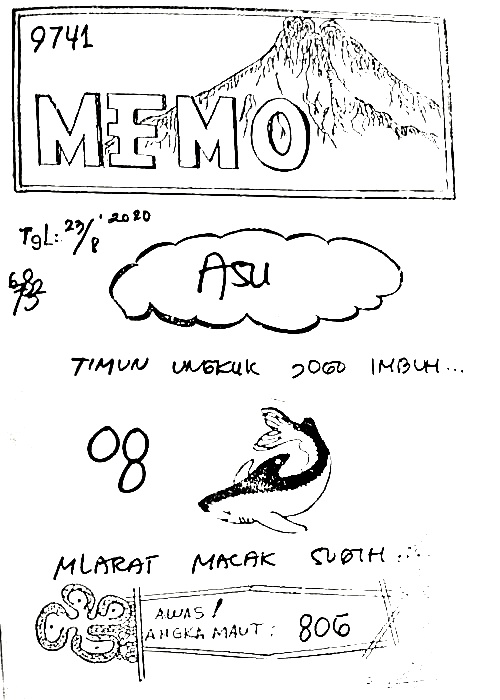 9741
MEMO
TgL: 23/8 '2020
ASU
TIMUN UNGKUK JOGO IMBUH...
08
MLARAT MACAK SUGIH...
AWAS!
ANGKA MAUT: 806